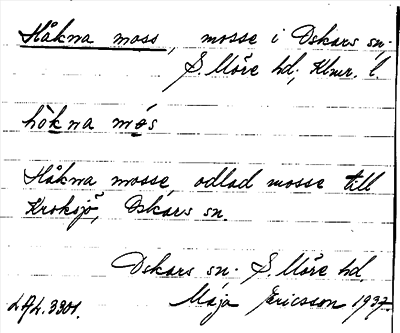 Håkna moss, mosse i Oskars sn.
S. Möre hd; Klmr. l.
hòkna mós
Håkna mosse, odlad mosse till
Kroksjö, Oskars sn.
Oskars sn. S. Möre hd.
Maja Ericsson 1937.